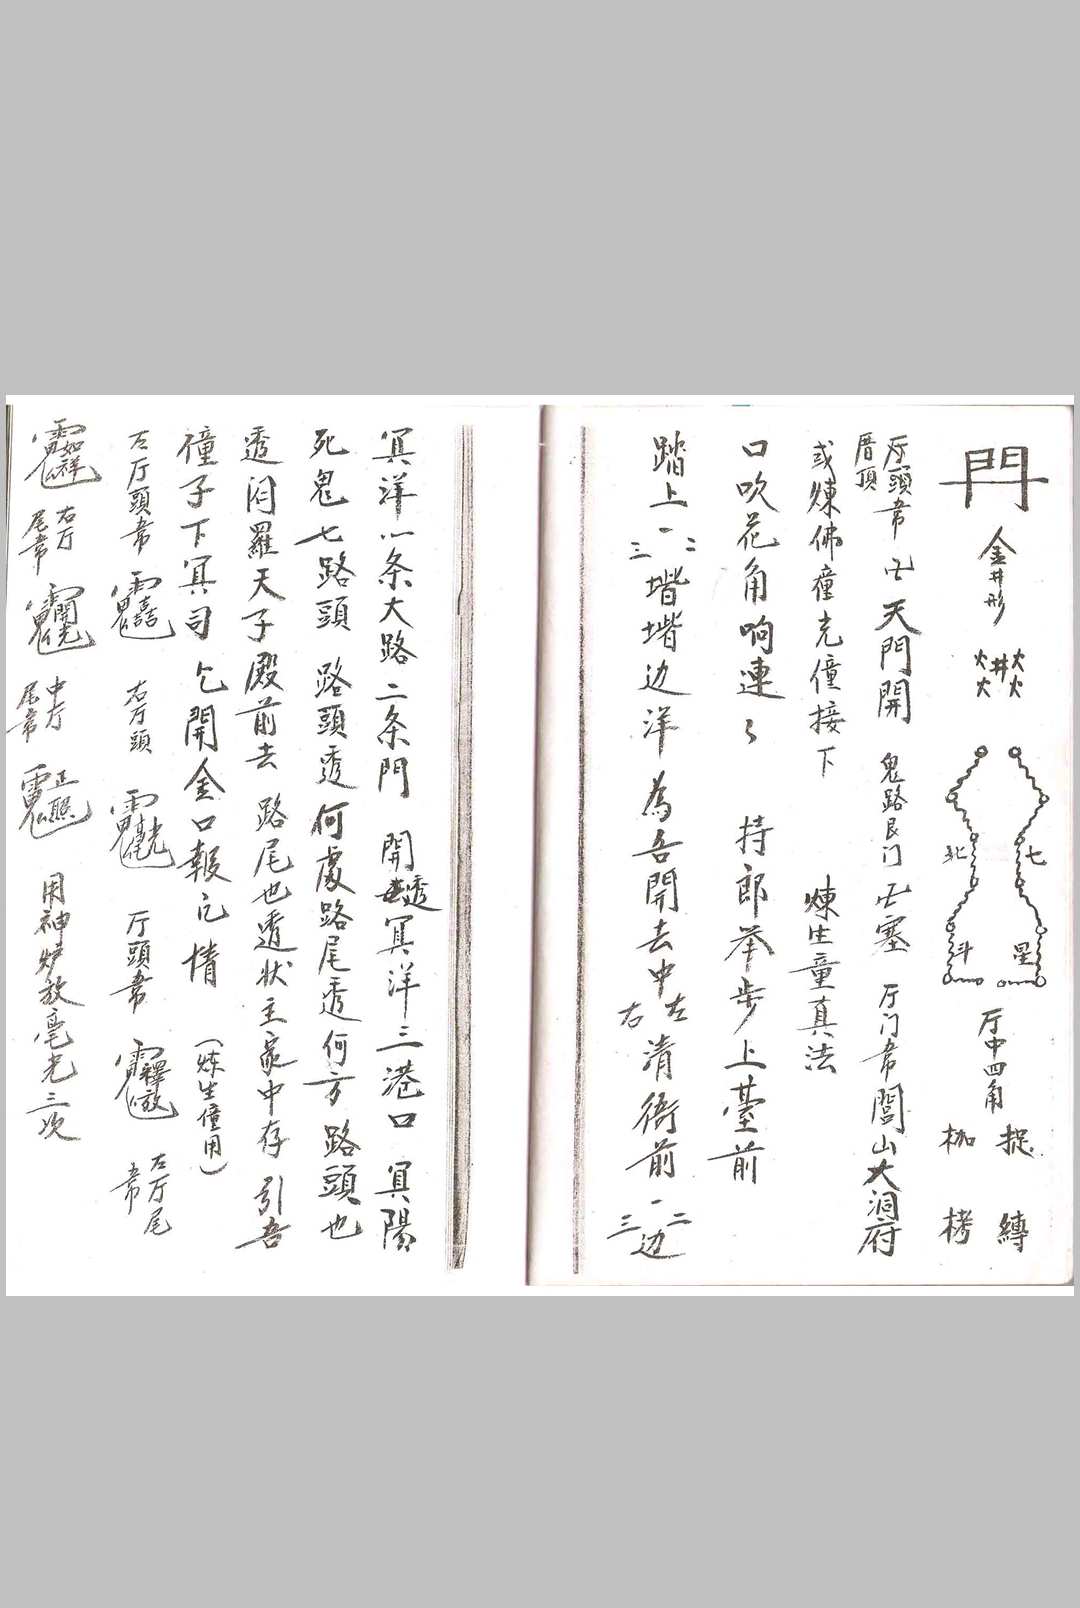 門 金井形 火火井火火 七星 北斗 厅中四角 捉 縛 枷 栲
厅頭書 厝頂 天門開 鬼路艮门 塞 厅门書 閭山大洞府
或煉佛僮克僮接下 煉生童真法
口吹花角响連〻 持郎举步上臺前
踏上一二三堦堦边洋 為吾開去中左右清衙前一二三边
冥洋八条大路二条門 開透冥洋三港口 冥陽
死鬼七路頭 路頭透何處路尾透何方 路頭也
透闰羅天子殿前去 路尾也透状主家中存 引吾
僮子下冥司 乞開金口報乞情 （炼生僮用）
左厅頭書 右厅頭 厅頭書 左厅尾書
右厅尾書 中厅尾書 用神炉放毫光三次